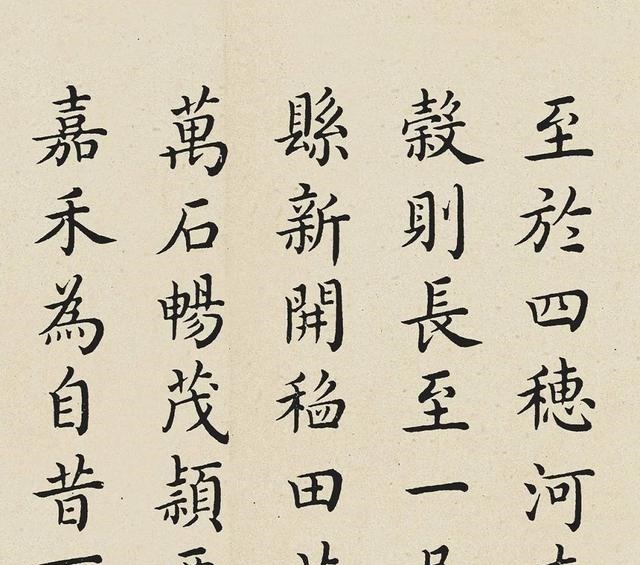 至於四穗河
穀則長至一
縣新開稻田
萬石暢茂穎
嘉禾為自昔